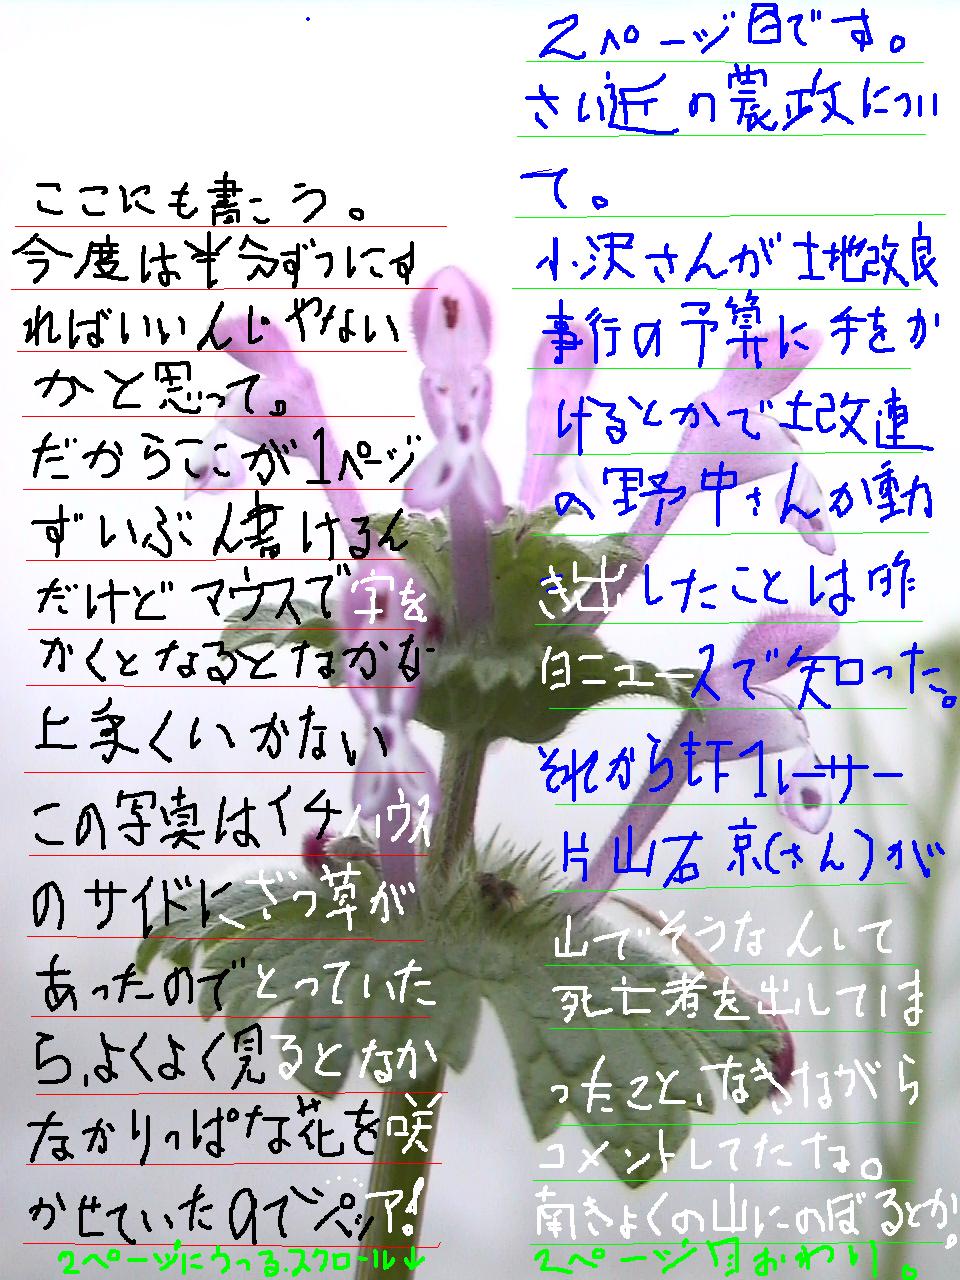 ここにも書こう。
今度は半分ずつにす
ればいいんじゃない
かと思って。
だからここが1ページ
ずいぶん書けるん
だけどマウスで字を
かくとなるとなかな
上手くいかない
この写真はイチハウス
のサイドにざっ草が
あったのでとっていた
ら、よくよく見るとなか
なかりっぱな花を咲
かせていたのでパシャ!
2ページにうつる.スクロール↓
2ページ目です。
さい近の農政につい
て。
小沢さんが土地改良
事行の予算に手をか
けるとかで土改連
の野中さんが動
き出したことは昨
日ニュースで知った。
それからもF1レーサー
片山右京(さん)が
山でそうなんして
死亡者を出してしま
ったこと、なきながら
コメントしてたな。
南きょくの山にのぼるとか。
2ページ目おわり。